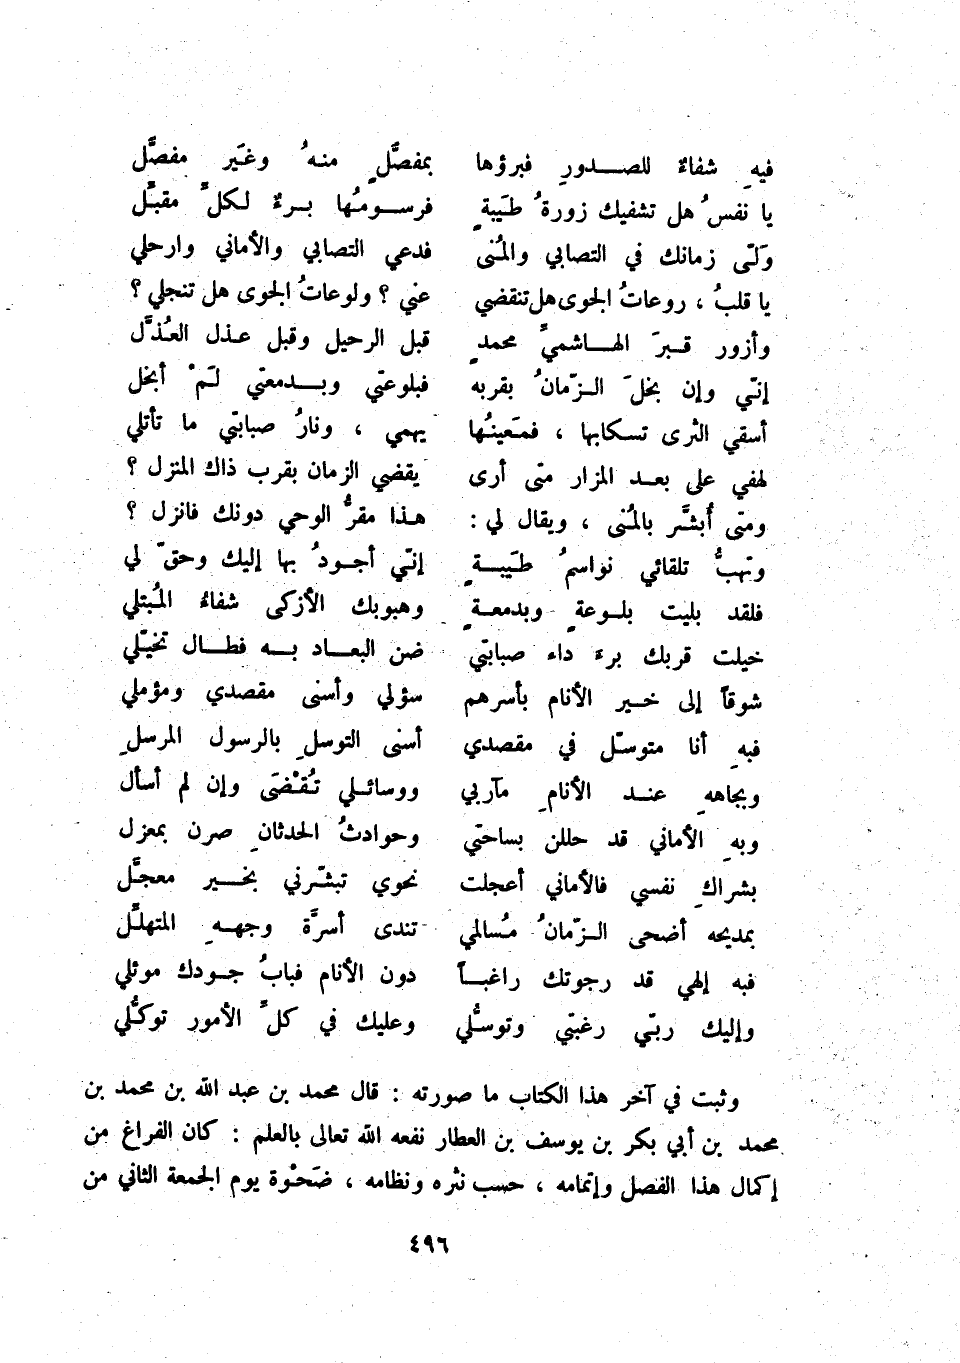 فيهِ شفاءٌ للصـدورِ فبرؤها بمفصَّلٍ منهُ وغَير مفصَّل
يا نفسُ هل تشفيك زورةُ طَيبةٍ فرسومُها بـرءٌ لكلِّ مقبَّل
وَلّى زمانك في التصابي والمُنى فدعي التصابي والأماني وارحلي
يا قلبُ ، روعاتُ الجوى هل تنقضي عني ؟ ولوعاتُ الجوى هل تنجلي ؟
وأزور قـبرَ الهـاشميِّ محمدٍ قبل الرحيل وقبل عـذل العُذَّل
إنّي وإن بخلَ الـزّمانُ بقربه فبلوعتي وبـدمعتي لَمْ أبخل
أسقي الثرى تسكابها ، فمَعينُها يهمي ، ونارُ صبابتي ما تأتلي
لهفي على بعـد المزار متى أرى يقضي الزمان بقرب ذاك المنزل ؟
ومتى أُبشَّر بالمُنى ، ويقال لي : هـذا مقرُّ الوحي دونك فانزل ؟
وتهبُّ تلقائي نواسمُ طَيبـةٍ إنّي أجـودُ بها إليك وحقّ لي
فلقد بليت بلـوعةٍ وبدمعـةٍ وهبوبك الأزكى شفاءُ المُبتلي
خيلت قربك برءَ داء صبابتي ضن البعـاد بـه فطـال تخيّلي
شوقاً إلى خـير الأنام بأسرهم سؤلي وأسنى مقصدي ومؤملي
فبهِ أنا متوسّل في مقصدي أسنى التوسلِ بالرسول المرسلِ
وبجاههِ عنـد الأنامِ مآربي ووسائـلي تُقْضَى وإن لم أسأل
وبهِ الأماني قد حللن بساحتي وحوادثُ الحدثانِ صرن بمعزل
بشراكِ نفسي فالأماني أعجلت نحوي تبشّرني بخـير معجَّل
بمديحه أضحى الـزّمانُ مُسالمي تندى أسرَّة وجهـهِ المتهلَّل
فبه إلهي قد رجوتك راغبـاً دون الأنام فبابُ جـودك موئلي
وإليك ربّي رغبتي وتوسلُّي وعليك في كلِّ الأمورِ توكلُّي
وثبت في آخر هذا الكتاب ما صورته : قال محمد بن عبد الله بن محمد بن
محمد بن أبي بكر بن يوسف بن العطار نفعه الله تعالى بالعلم : كان الفراغ من
إكمال هذا الفصل وإتمامه ، حسب نثره ونظامه ، ضَحْوة يوم الجمعة الثاني من
٤٩٦